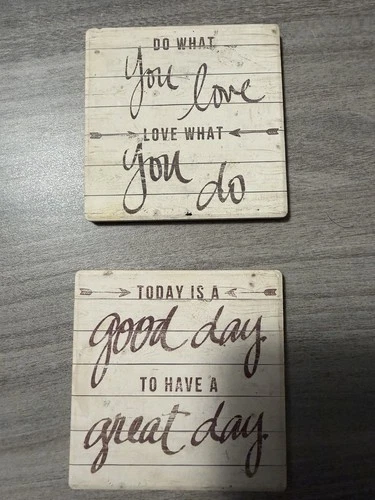 DO WHAT
you love
LOVE WHAT
you do
TODAY IS A
good day
TO HAVE A
great day.